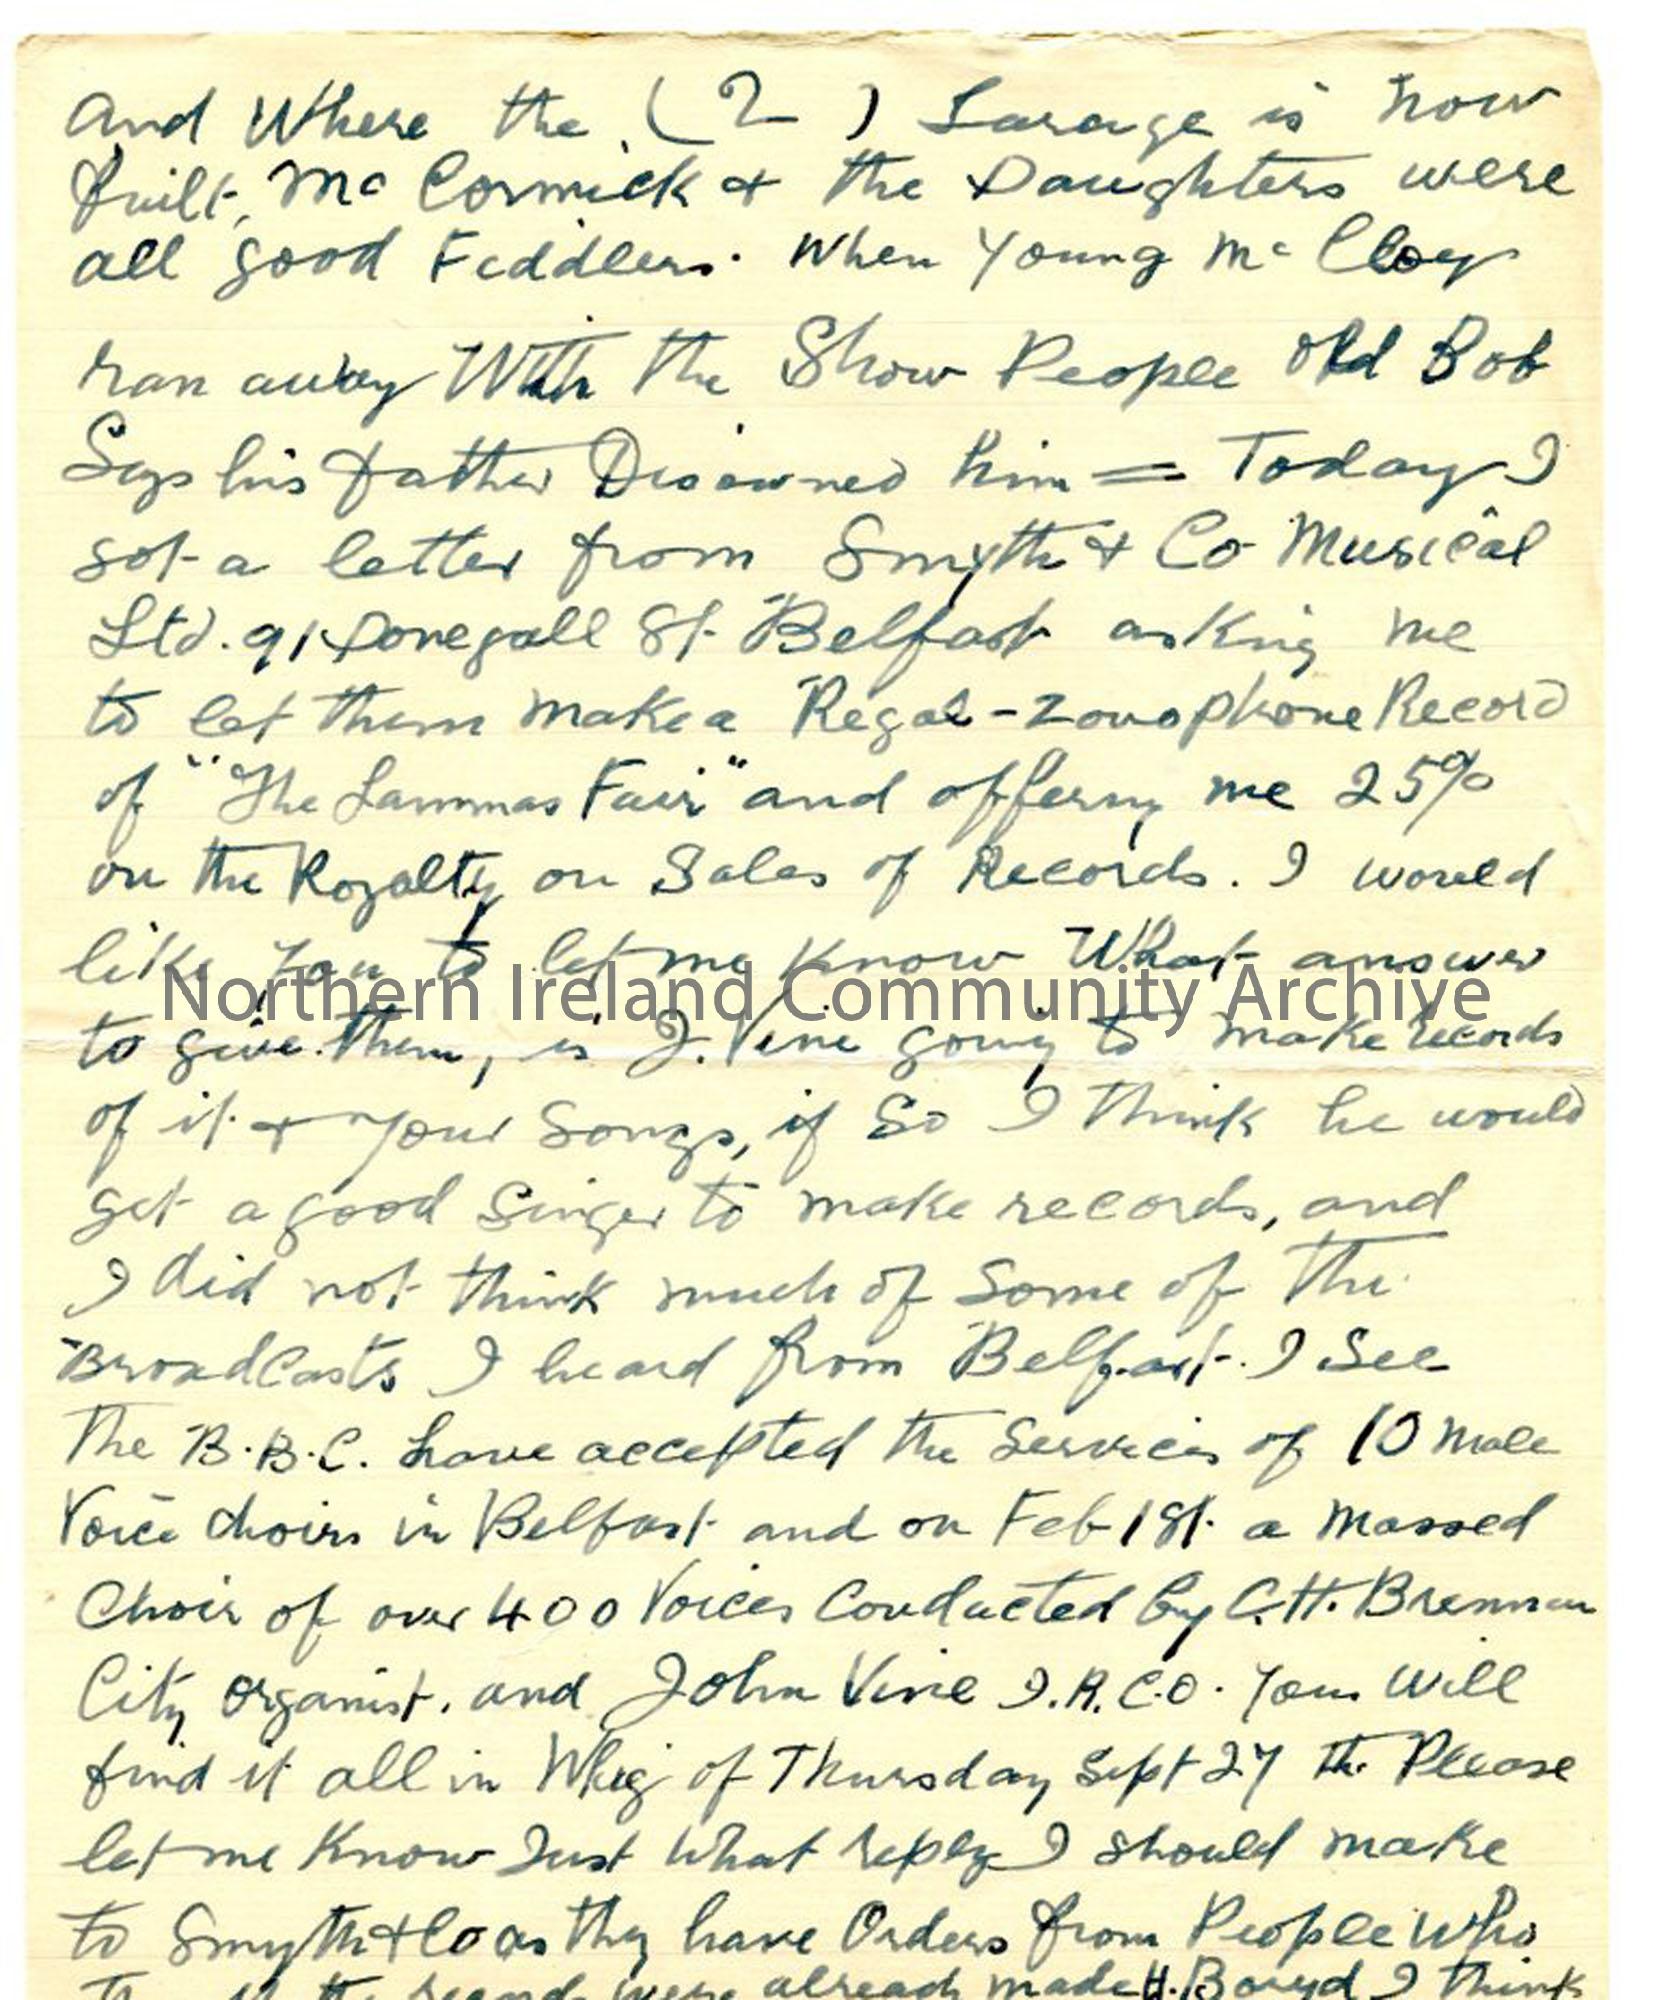 and Where the (2) Garage is now
built, McCormick & the Daughters were
all good Feddlers. When Young McCloy
ran away With the Show People Old Bob
Says his father Disowned him = Today I
got a letter from Smyth & Co Musical
Ltd. 91 Donegall St. Belfast asking me
to let them make a Regal-Zonophone Record
of "The Lammas Fair" and offering me 25%
on the Royalty on Sales of Records. I would
like you to let me Know What answer
Northern Ireland Community Archive
to give them, is J. Vine going to make records
of it & your Songs, if So I think he would
get a good Singer to make records, and
I did not think much of Some of the
Broadcasts I heard from Belfast. I See
The B.B.C. have accepted the Services of 10 male
Voice choirs in Belfast and on Feb 1st a Massed
Choir of over 400 Voices Conducted by C.H. Brennan
City Organist, and John Vine I.R.C.O. You Will
find it all in Whig of Thursday Sept 27th Please
let me Know Just what reply I should make
to Smyth & Co as they have Orders from People Who
were already made H. Boyd I think